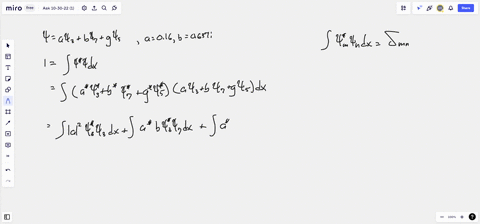 miro
Ask 10-30-22 (1)
Share
Ψ = aΨ₃ + bΨ₇ + gΨ₅ , a = 0.16, b = 0.67i
∫ Ψ*ₘ Ψₙ dx = δₘₙ
1 = ∫ Ψ*Ψ dx
= ∫ (a*Ψ₃* + b*Ψ₇* + g*Ψ₅*) (aΨ₃ + bΨ₇ + gΨ₅) dx
= ∫ |a|² Ψ₃*Ψ₃ dx + ∫ a* b Ψ₃*Ψ₇ dx + ∫ a*